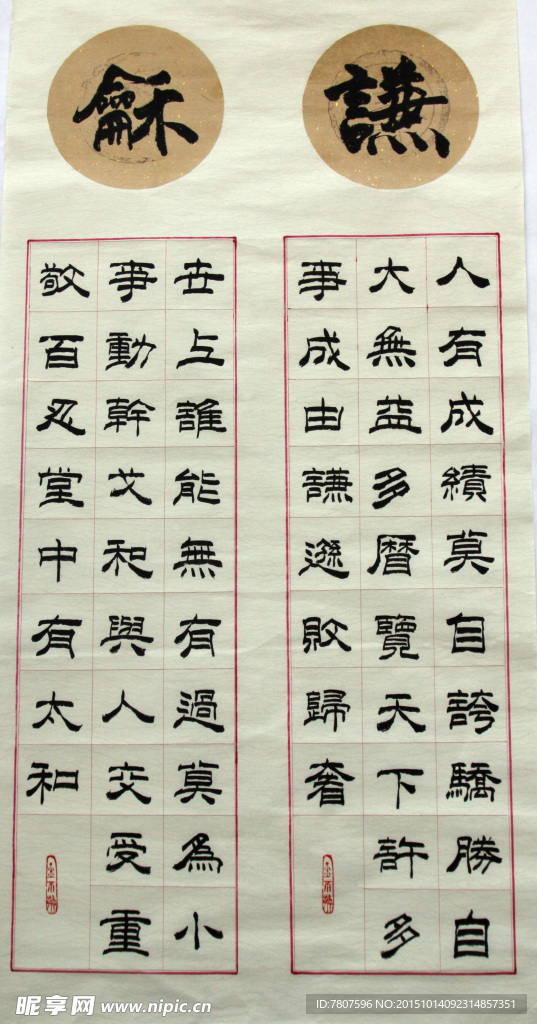 謙
人有成績莫自誇驕勝自
大無益多曆覽天下許多
事成由謙遜敗歸奢
龢
世上誰能無有過莫為小
事動幹戈和與人交受重
敬百忍堂中有太和
昵享网 www.nipic.cn
ID:7807596 NO:20151014092314857351